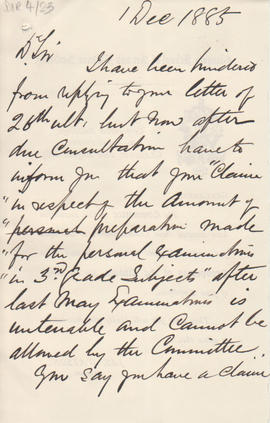 1 Dec 1885
Dr Sir
I have been hindered
from replying to your letter of
26th ult. but now after
due Consultation have to
inform you that your "Claim
"in respect of the Amount of
"personal preparation made
"for the personal Examination
"in 3rd Grade Subjects" after
last May Examinations is
untenable and Cannot be
allowed by the Committee.
You say you have a Claim